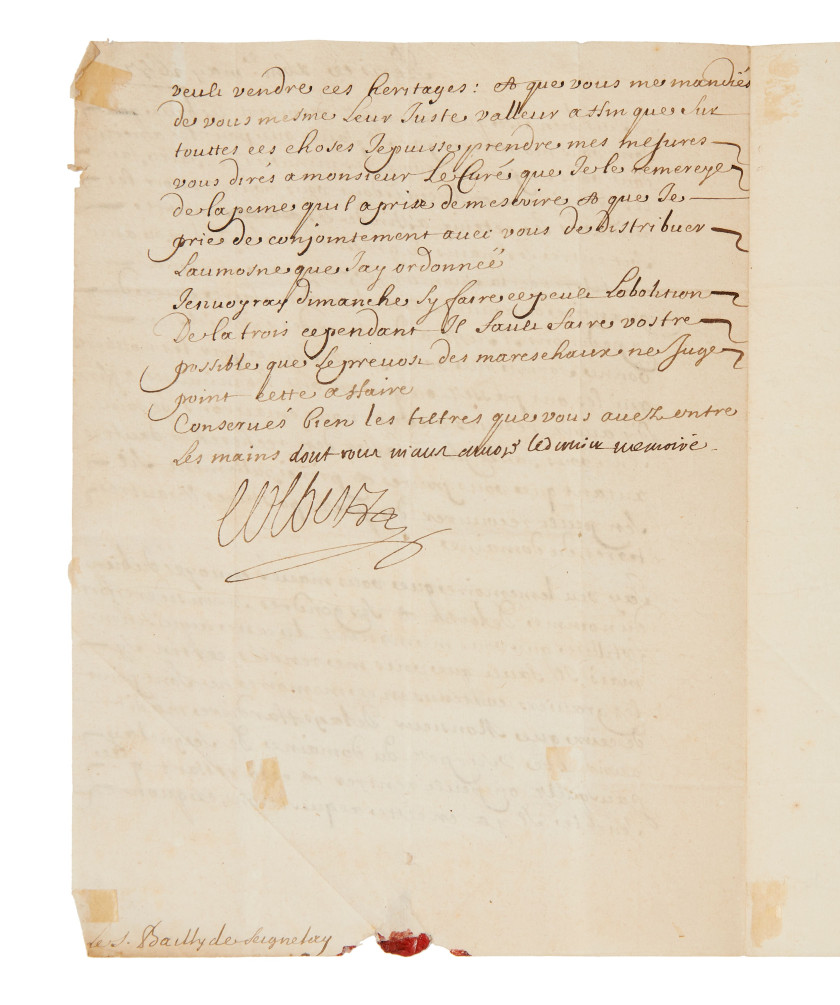 veult vendre ces heritages: & que vous me mandiés
de vous mesme leur Juste valleur affin que sur
touttes ces choses Je puisse prendre mes mesures
vous dirés a monsieur Le Curé que Je le remercye
de la peine quil a prise de mescrire & que Je
prie de conjointement avec vous de Distribuer
Laumosne que Jay ordonneé
Jenvoyray dimanche sy faire ce peult
De la trois cependant Il fault faire vostre
possible que Le prevost des mareschaux ne Juge
point cette affaire
Conserves bien les tiltres que vous avez entre
Les mains dont vous m'avez envoyé le dernier memoire.
Colbert
Le S. Bailly de Seignelay